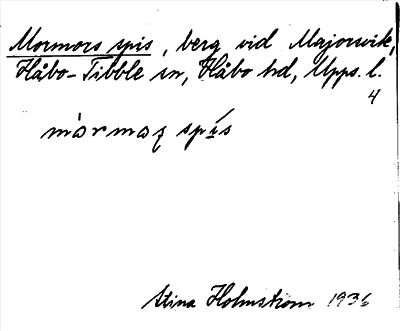 Mormors spis, berg vid Majorsvik,
Håbo-Tibble sn, Håbo hd, Upps. l.
4
mòrmaʂ spís
Stina Holmström 1936